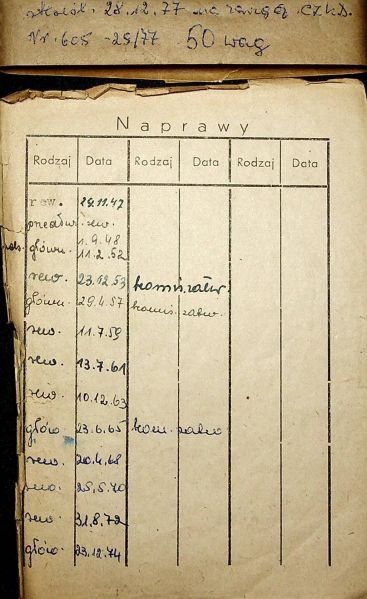 28.12.77 na
Nr. 605-25/77 50 wag
Naprawy
Rodzaj Data Rodzaj Data Rodzaj Data
rew. 29.11.47
przedłuż. rew. 1.9.48
główn. 11.2.52
rew. 23.12.53 komis. załw.
główn. 29.4.57 komis. załw.
rew. 11.7.59
rew. 13.7.61
rew. 10.12.63
głów. 23.6.65 kom. załw
rew. 20.4.68
rew. 25.5.70
rew. 31.8.72
głów. 23.12.74